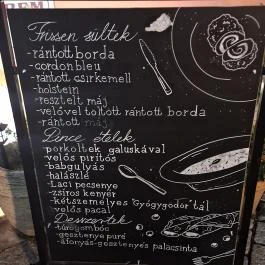 Frissen sültek
-rántott borda
-cordon bleu
-rántott csirkemell
-holstein
-resztelt máj
-velővel töltött rántott borda
-rántott máj
Pince ételek
-pörköltek galuskával
-velős pirítós
-babgulyás
-halászlé
-Laci pecsenye
-zsíros kenyér
-kétszemélyes "Gyógygödör" tál
-velős pacal
Desszertek
-túrógombóc
-gesztenye püré
-áfonyás-gesztenyés palacsinta